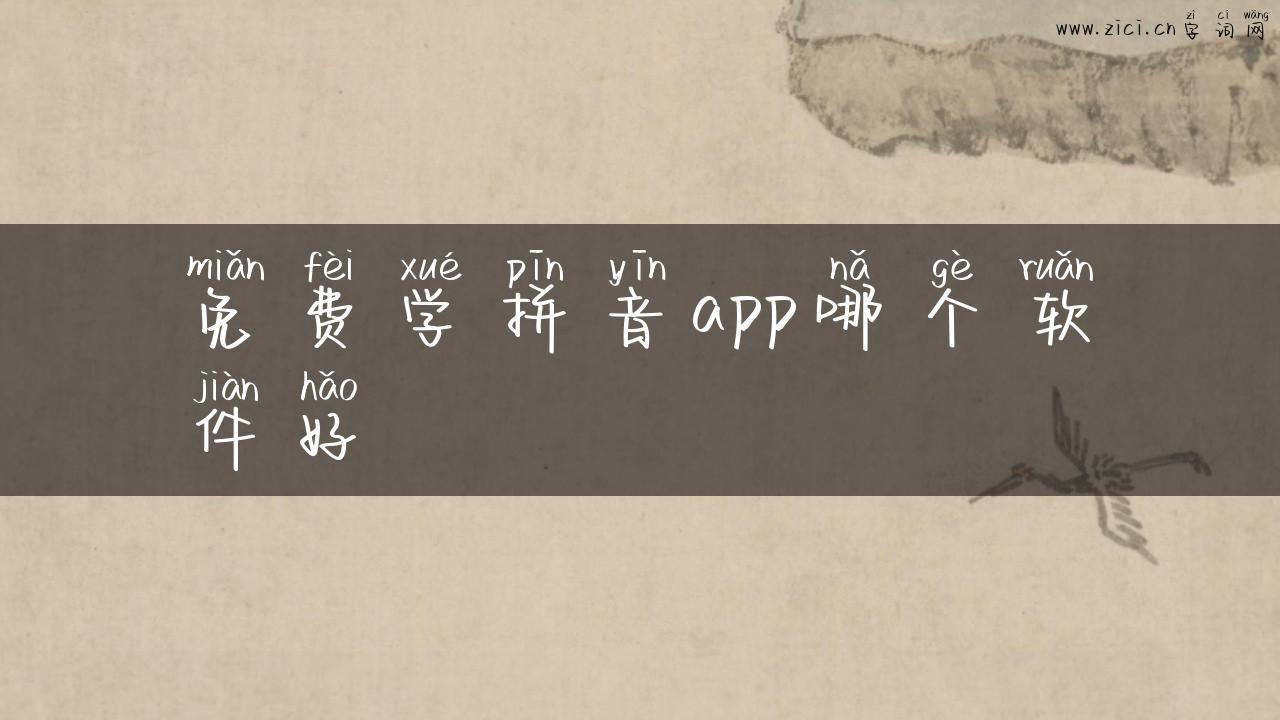 zì cí wǎng
www.zici.cn 字词网
miǎn fèi xué pīn yīn nǎ gè ruǎn
免费学拼音app哪个软
jiàn hǎo
件好